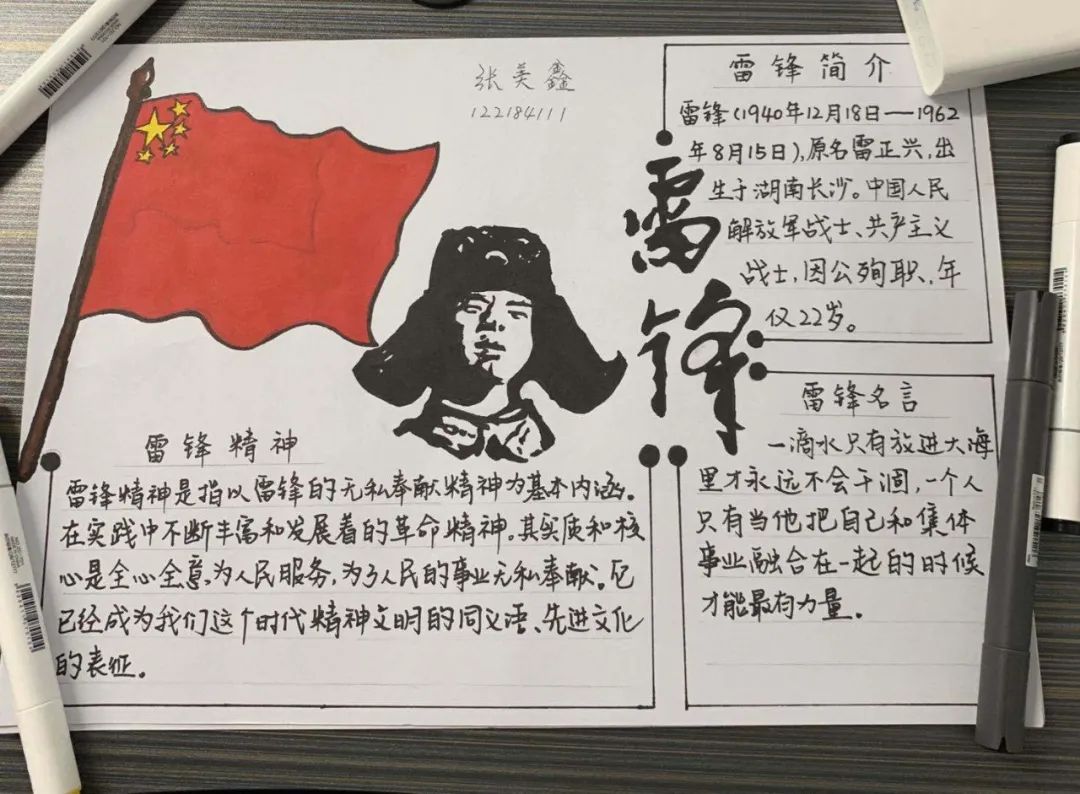 张美鑫
122184111
雷锋简介
雷锋(1940年12月18日——1962
年8月15日),原名雷正兴,出
生于湖南长沙。中国人民
解放军战士、共产主义
战士,因公殉职,年
仅22岁。
雷锋
雷锋名言
一滴水只有放进大海
里才永远不会干涸,一个人
只有当他把自己和集体
事业融合在一起的时候
才能最有力量。
雷锋精神
雷锋精神是指以雷锋的无私奉献精神为基本内涵。
在实践中不断丰富和发展着的革命精神。其实质和核
心是全心全意为人民服务,为了人民的事业无私奉献。它
已经成为我们这个时代精神文明的同义语、先进文化
的表征。